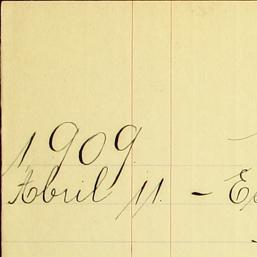 1909
Abril 11. -